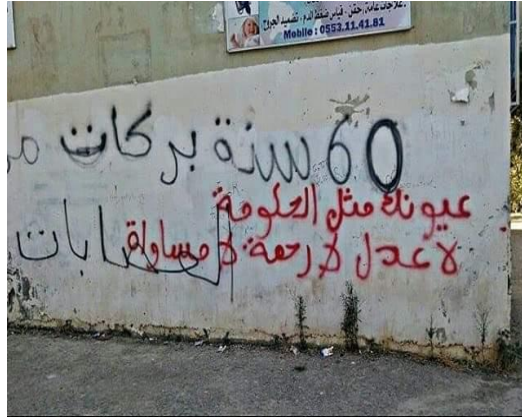 علاجات عامة، حقن، قياس ضغط الدم، تضميد الجروح
Mobile : 0553.11.41.81
60 سنة بركات من
عيونك مثل الحكومة
لا عدل لا رحمة لا مساواة